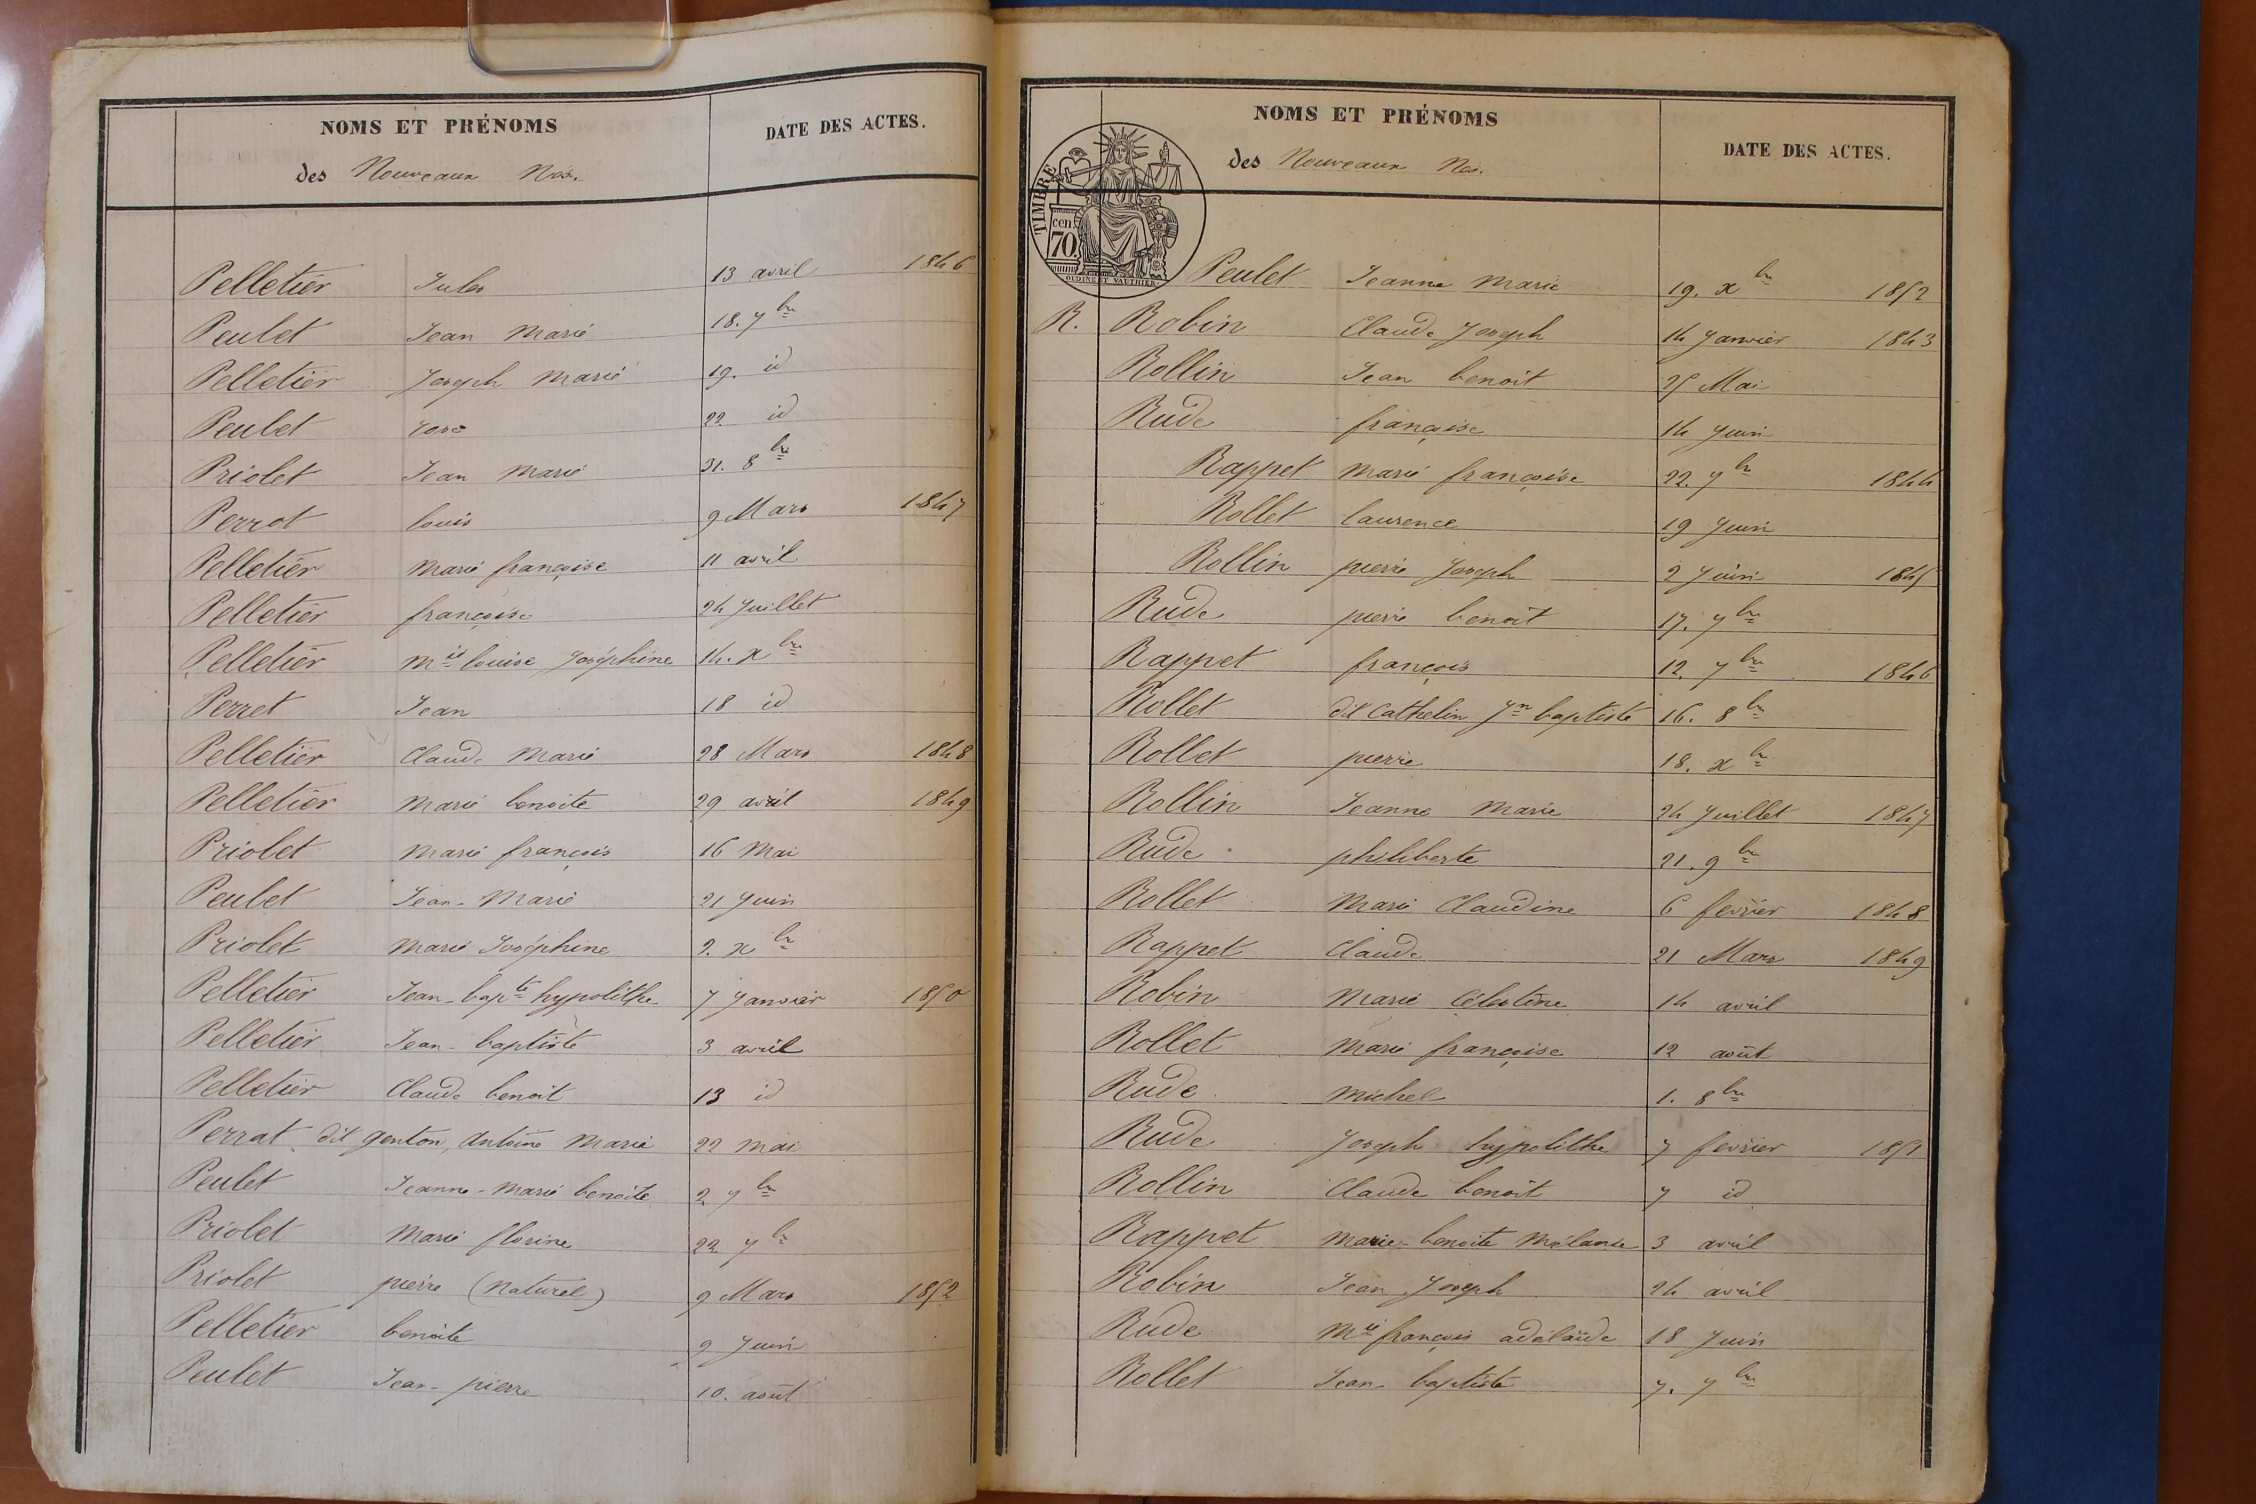 NOMS ET PRÉNOMS
des Nouveaux Nés.
DATE DES ACTES.
Pelletier Jules 13 avril 1846
Peulet Jean Marie 18. 7bre
Pelletier Joseph Marie 19. id
Peulet 22 id
Priolet Jean Marie 31. 8bre
Perrot louis 9 Mars 1847
Pelletier Marie françoise 11 avril
Pelletier françoise 24 Juillet
Pelletier Mie louise Joséphine 14. xbre
Perret Jean 18 id
Pelletier Claude Marie 28 Mars 1848
Pelletier Marie benoite 29 avril 1849
Priolet Marie françois 16 Mai
Peulet Jean-Marie 21 Juin
Priolet Marie Joséphine 2. xbre
Pelletier Jean-bapte hypolithe 7 Janvier 1850
Pelletier Jean-baptiste 3 avril
Pelletier Claude benoit 13 id
Perrat dit genton, Antoine Marie 22 mai
Peulet Jeanne-Marie benoite 2 7bre
Priolet Marie florine 22 7bre
Priolet pierre (Naturel) 9 Mars 1852
Pelletier benoite 9 Juin
Peulet Jean-pierre 10. août
NOMS ET PRÉNOMS
des Nouveaux Nés.
DATE DES ACTES.
TIMBRE
70 cen.
OUDINÉ ET VAUTHIER
Peulet Jeanne Marie 19. xbre 1852
R. Robin Claude Joseph 14 Janvier 1843
Rollin Jean benoit 25 Mai
Rude françoise 14 Juin
Rappet Marie françoise 22. 7bre 1844
Rollet laurence 19 Juin
Rollin pierre Joseph 2 Juin 1845
Rude pierre benoit 17. 7bre
Rappet françois 12. 7bre 1846
Rollet dit Cathelin Jn baptiste 16. 8bre
Rollet pierre 18. xbre
Rollin Jeanne Marie 24 Juillet 1847
Rude philiberte 21. 9bre
Rollet Marie Claudine 6 fevrier 1848
Rappet Claude 21 Mars 1849
Robin Marie Célestine 14 avril
Rollet Marie françoise 12 août
Rude Michel 1. 8bre
Rude Joseph hypolithe 7 fevrier 1851
Rollin Claude benoit 7 id
Rappet Marie-benoite Mélanie 3 avril
Robin Jean Joseph 24 avril
Rude Mie françois adélaïde 18 Juin
Rollet Jean-baptiste 7. 7bre